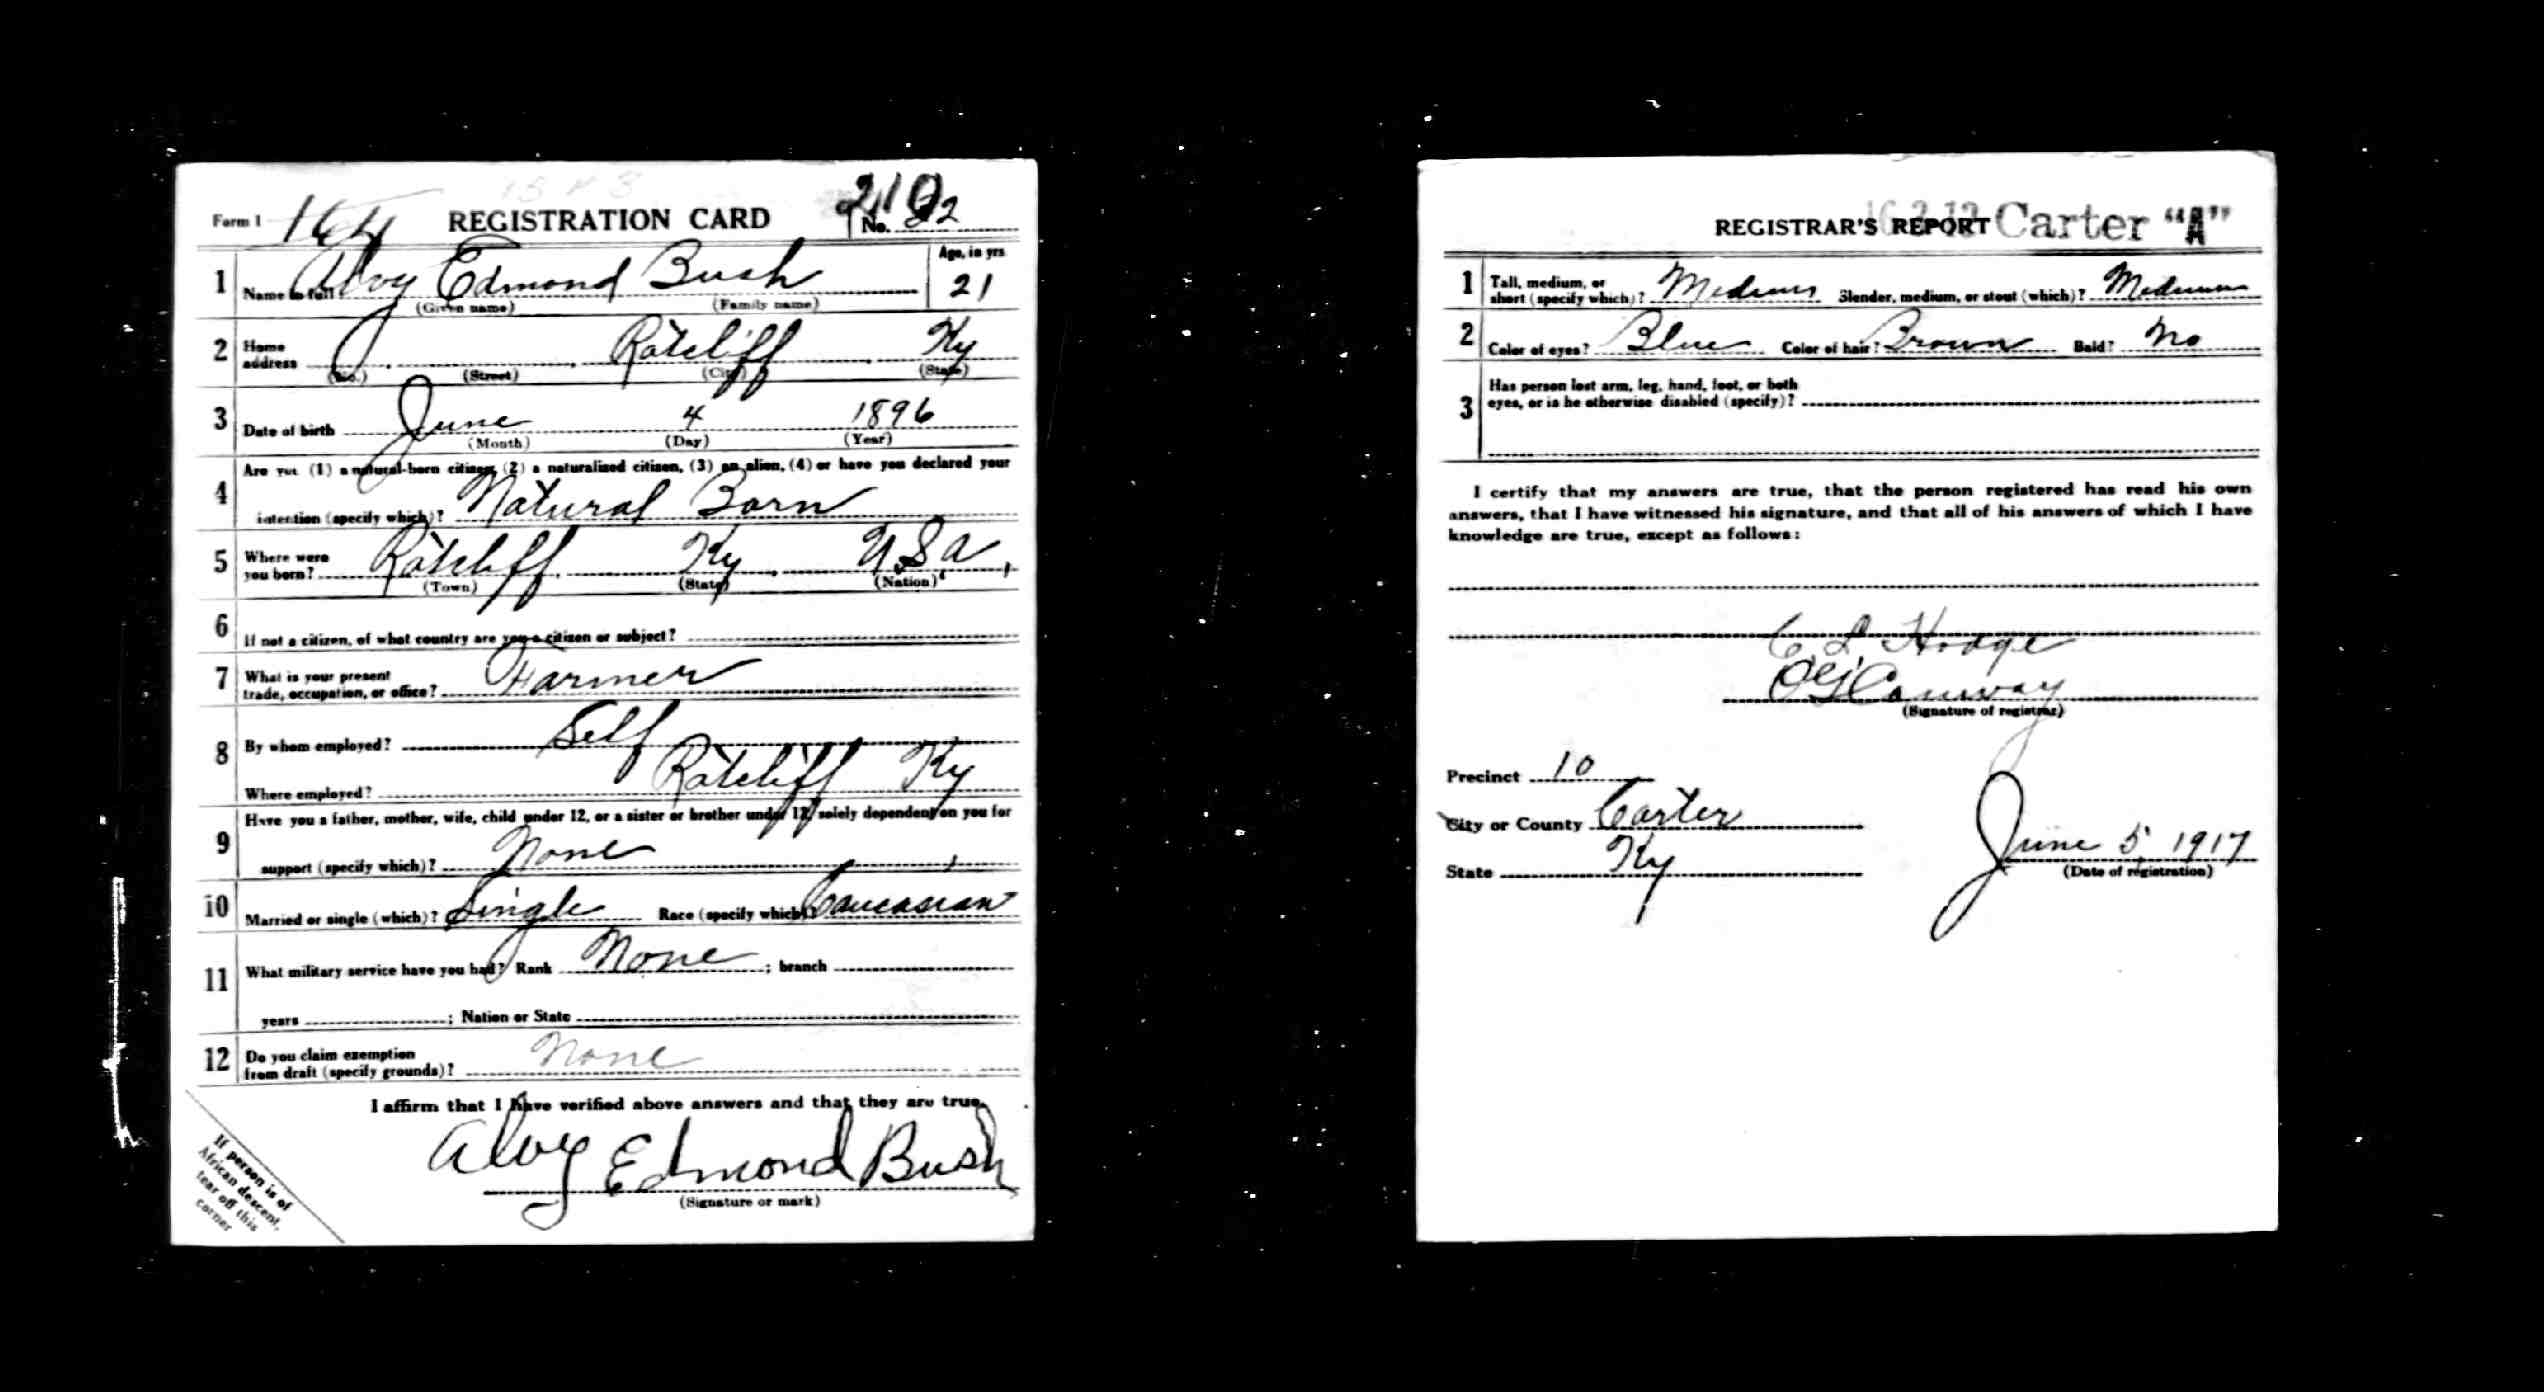 Form 1 164 REGISTRATION CARD No. 22
210
1 Name in full Alvy Edmond Bush Age, in yrs 21
(Given name) (Family name)
2 Home address Ratcliff Ky
(No.) (Street) (City) (State)
3 Date of birth June 4 1896
(Month) (Day) (Year)
4 Are you (1) a natural-born citizen, (2) a naturalized citizen, (3) an alien, (4) or have you declared your
intention (specify which)? Natural Born
5 Where were you born? Ratcliff Ky U.S.A,
(Town) (State) (Nation)
6 If not a citizen, of what country are you a citizen or subject?
7 What is your present
trade, occupation, or office? Farmer
8 By whom employed? Self
Where employed? Ratcliff Ky
9 Have you a father, mother, wife, child under 12, or a sister or brother under 12, solely dependent on you for
support (specify which)? None
10 Married or single (which)? Single Race (specify which)? Caucasian
11 What military service have you had? Rank None ; branch
years ; Nation or State
12 Do you claim exemption
from draft (specify grounds)? None
I affirm that I have verified above answers and that they are true.
Alvy Edmond Bush
(Signature or mark)
If person is of
African descent,
tear off this
corner
REGISTRAR'S REPORT Carter "A"
1 Tall, medium, or
short (specify which)? Medium Slender, medium, or stout (which)? Medium
2 Color of eyes? Blue Color of hair? Brown Bald? No
3 Has person lost arm, leg, hand, foot, or both
eyes, or is he otherwise disabled (specify)?
I certify that my answers are true, that the person registered has read his own
answers, that I have witnessed his signature, and that all of his answers of which I have
knowledge are true, except as follows:
C. L. Hodge
(Signature of registrar)
Precinct 10
City or County Carter
State Ky
June 5 1917
(Date of registration)